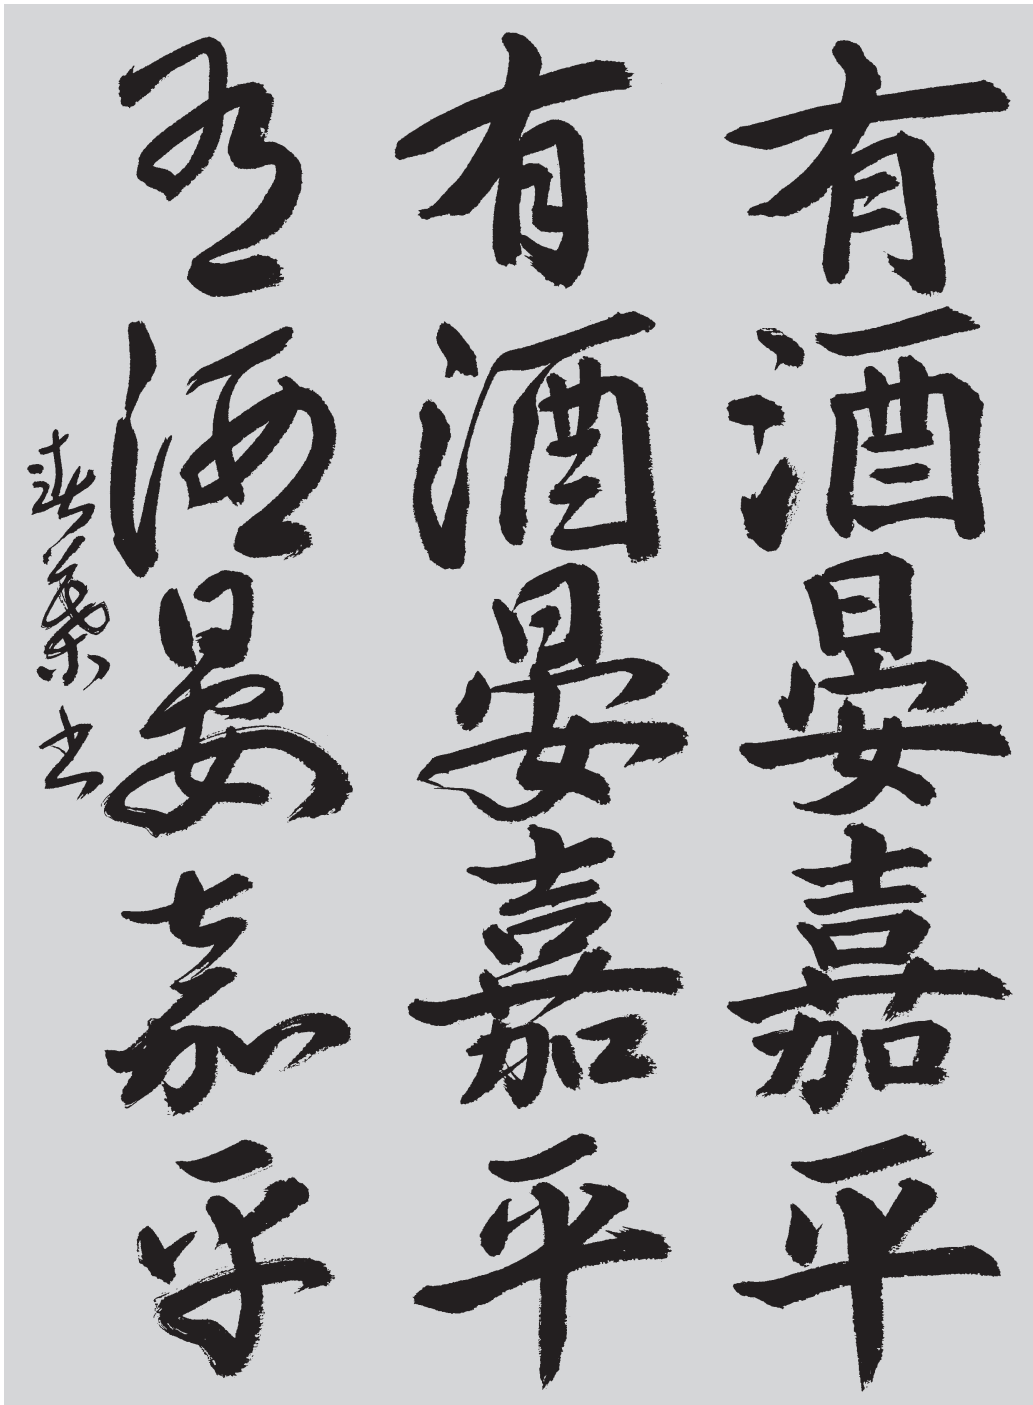 有酒晏嘉平
有酒晏嘉平
有酒晏嘉平
春葉书